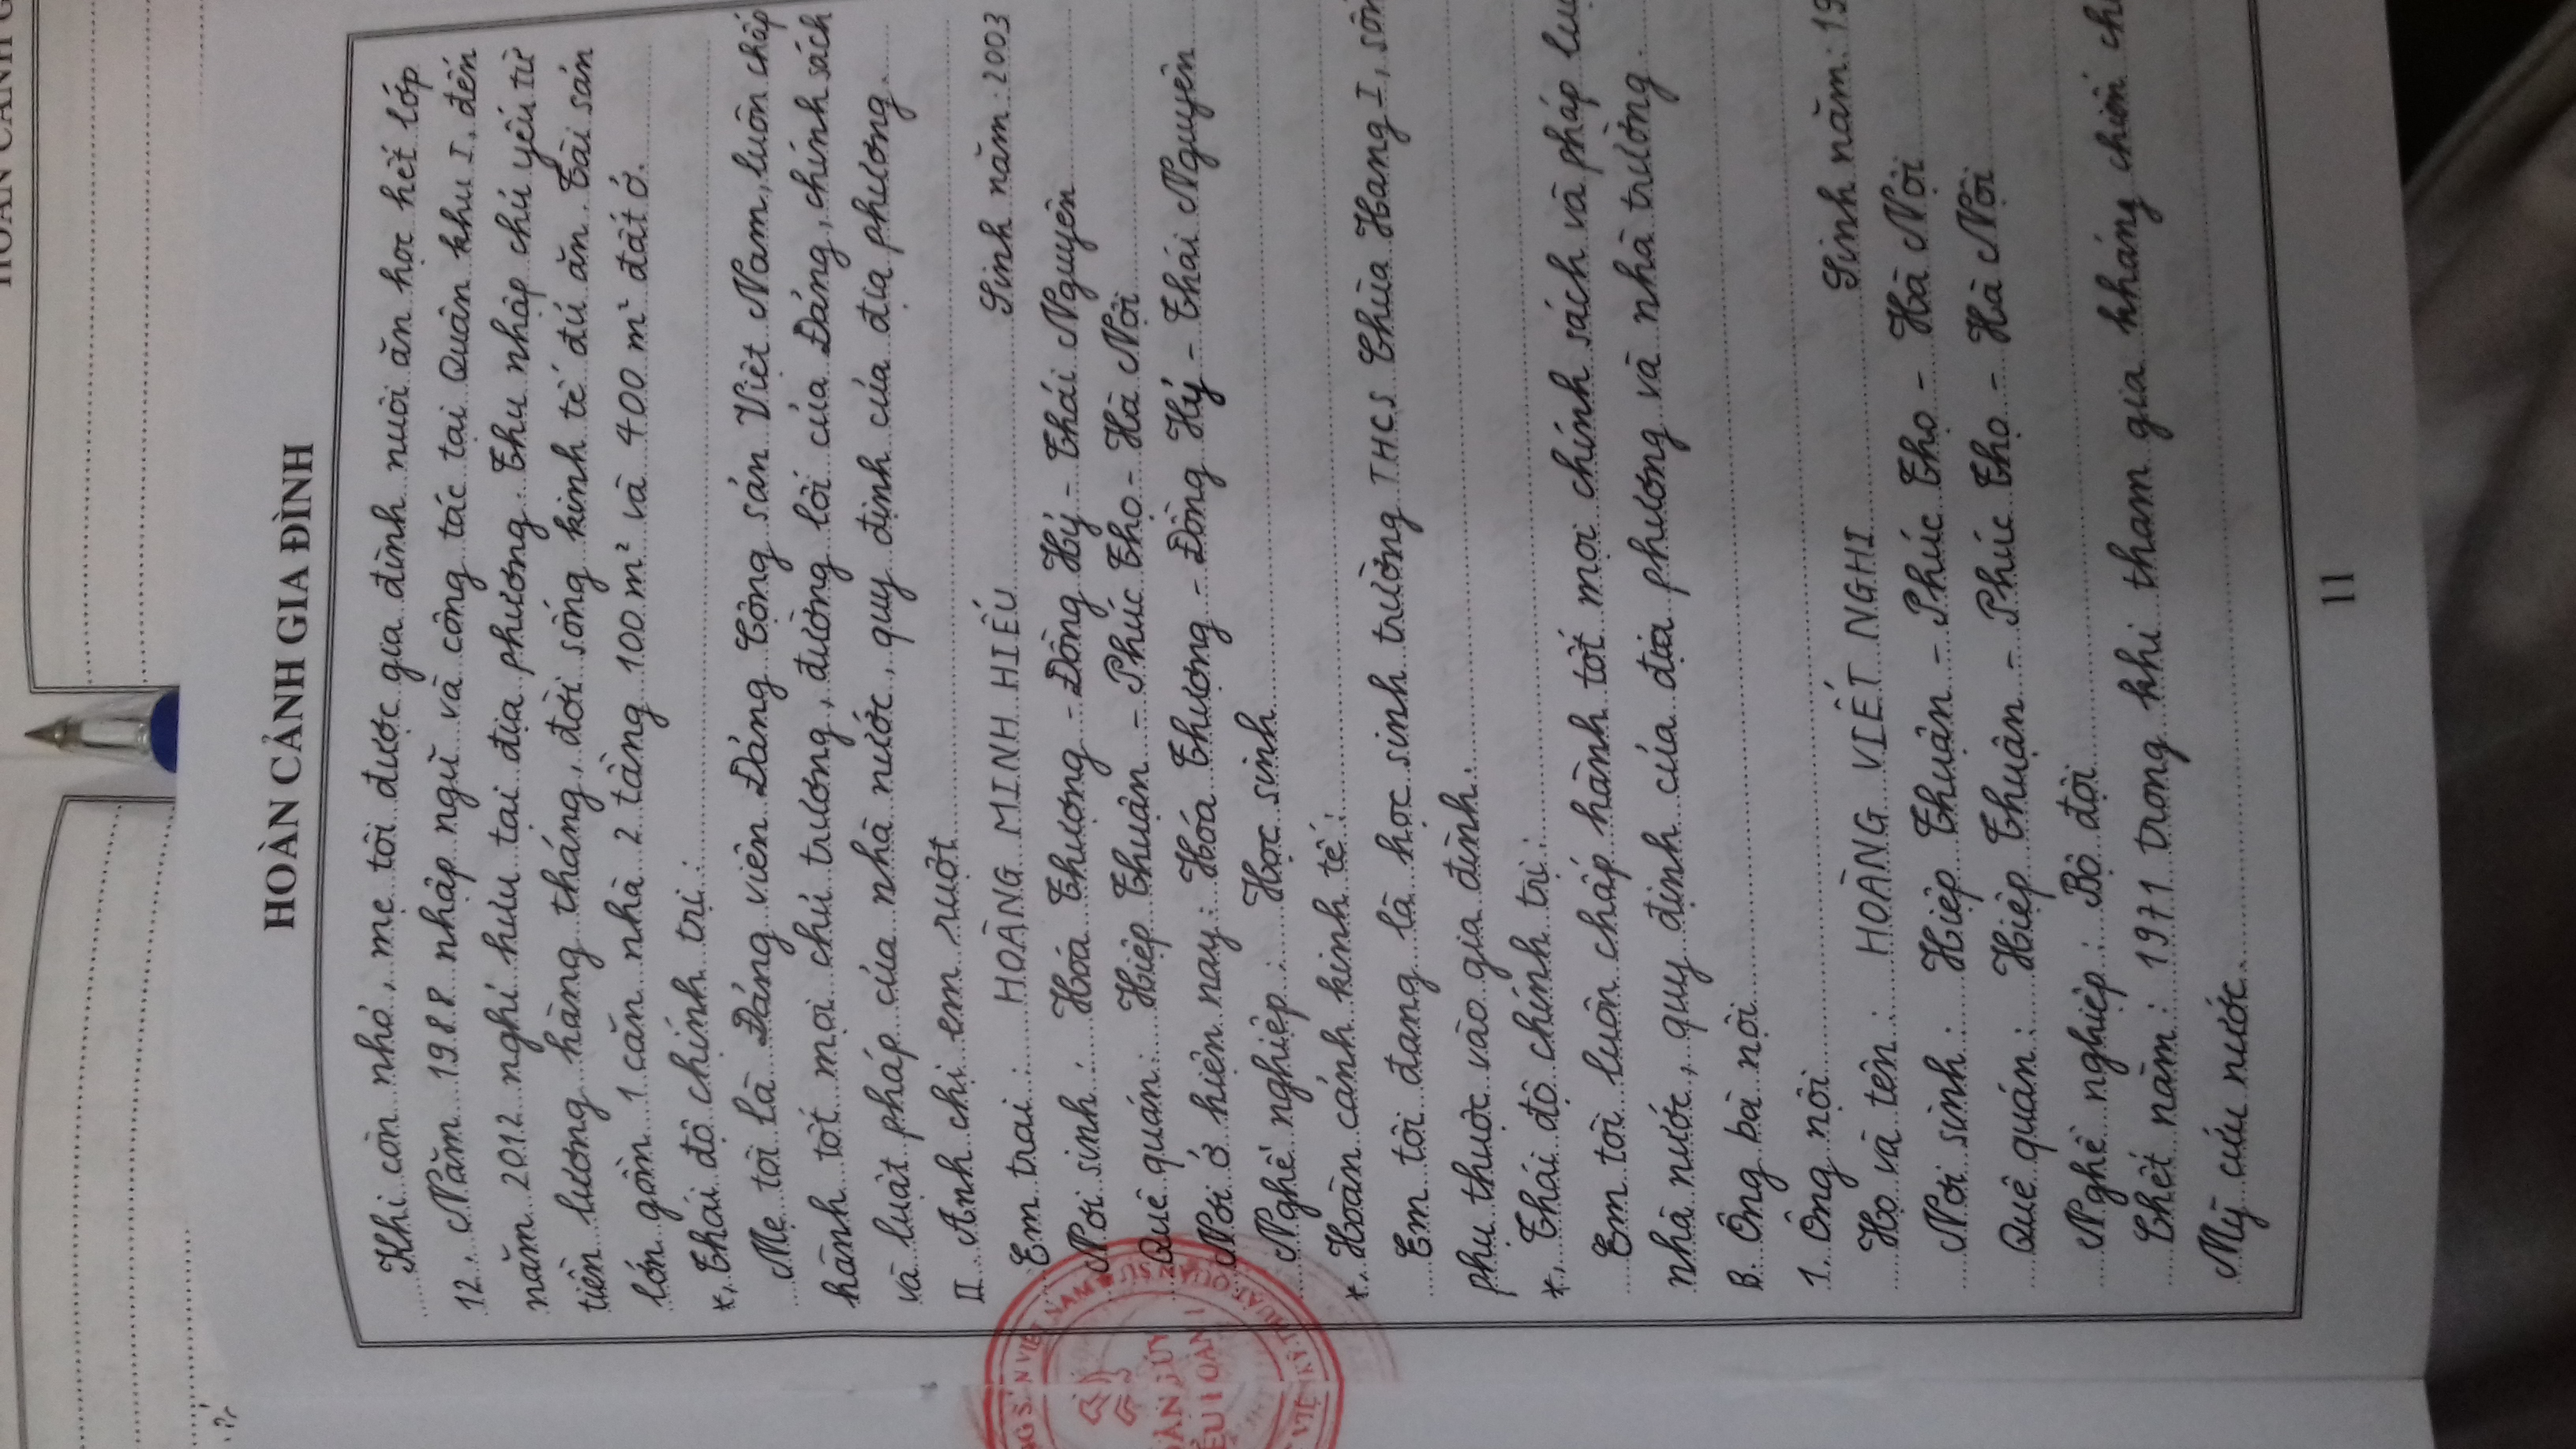 HOÀN CẢNH GIA ĐÌNH
Khi còn nhỏ, mẹ tôi được gia đình nuôi ăn học hết lớp
12. Năm 1988 nhập ngũ và công tác tại Quân khu I, đến
năm 2012 nghỉ hưu tại địa phương. Thu nhập chủ yếu từ
tiền lương hàng tháng, đời sống kinh tế đủ ăn. Tài sản
lớn gồm 1 căn nhà 2 tầng 100 m² và 400 m² đất ở.
*, Thái độ chính trị:
Mẹ tôi là Đảng viên Đảng Cộng sản Việt Nam, luôn chấp
hành tốt mọi chủ trương, đường lối của Đảng, chính sách
và luật pháp của nhà nước, quy định của địa phương.
II. Anh chị em ruột
Em trai: HOÀNG MINH HIẾU Sinh năm: 2003
Nơi sinh: Hoá Thượng - Đồng Hỷ - Thái Nguyên
Quê quán: Hiệp Thuận - Phúc Thọ - Hà Nội
Nơi ở hiện nay: Hóa Thượng - Đồng Hỷ - Thái Nguyên
Nghề nghiệp: Học sinh
*, Hoàn cảnh kinh tế:
Em tôi đang là học sinh trường THCS Chùa Hang I, sốn
phụ thuộc vào gia đình.
*, Thái độ chính trị:
Em tôi luôn chấp hành tốt mọi chính sách và pháp lu
nhà nước, quy định của địa phương và nhà trường.
B. Ông bà nội
1. Ông nội
Họ và tên: HOÀNG VIẾT NGHI Sinh năm: 19
Nơi sinh: Hiệp Thuận - Phúc Thọ - Hà Nội
Quê quán: Hiệp Thuận - Phúc Thọ - Hà Nội
Nghề nghiệp: Bộ đội
Chết năm: 1971 trong khi tham gia kháng chiến ch
Mỹ cứu nước.
11